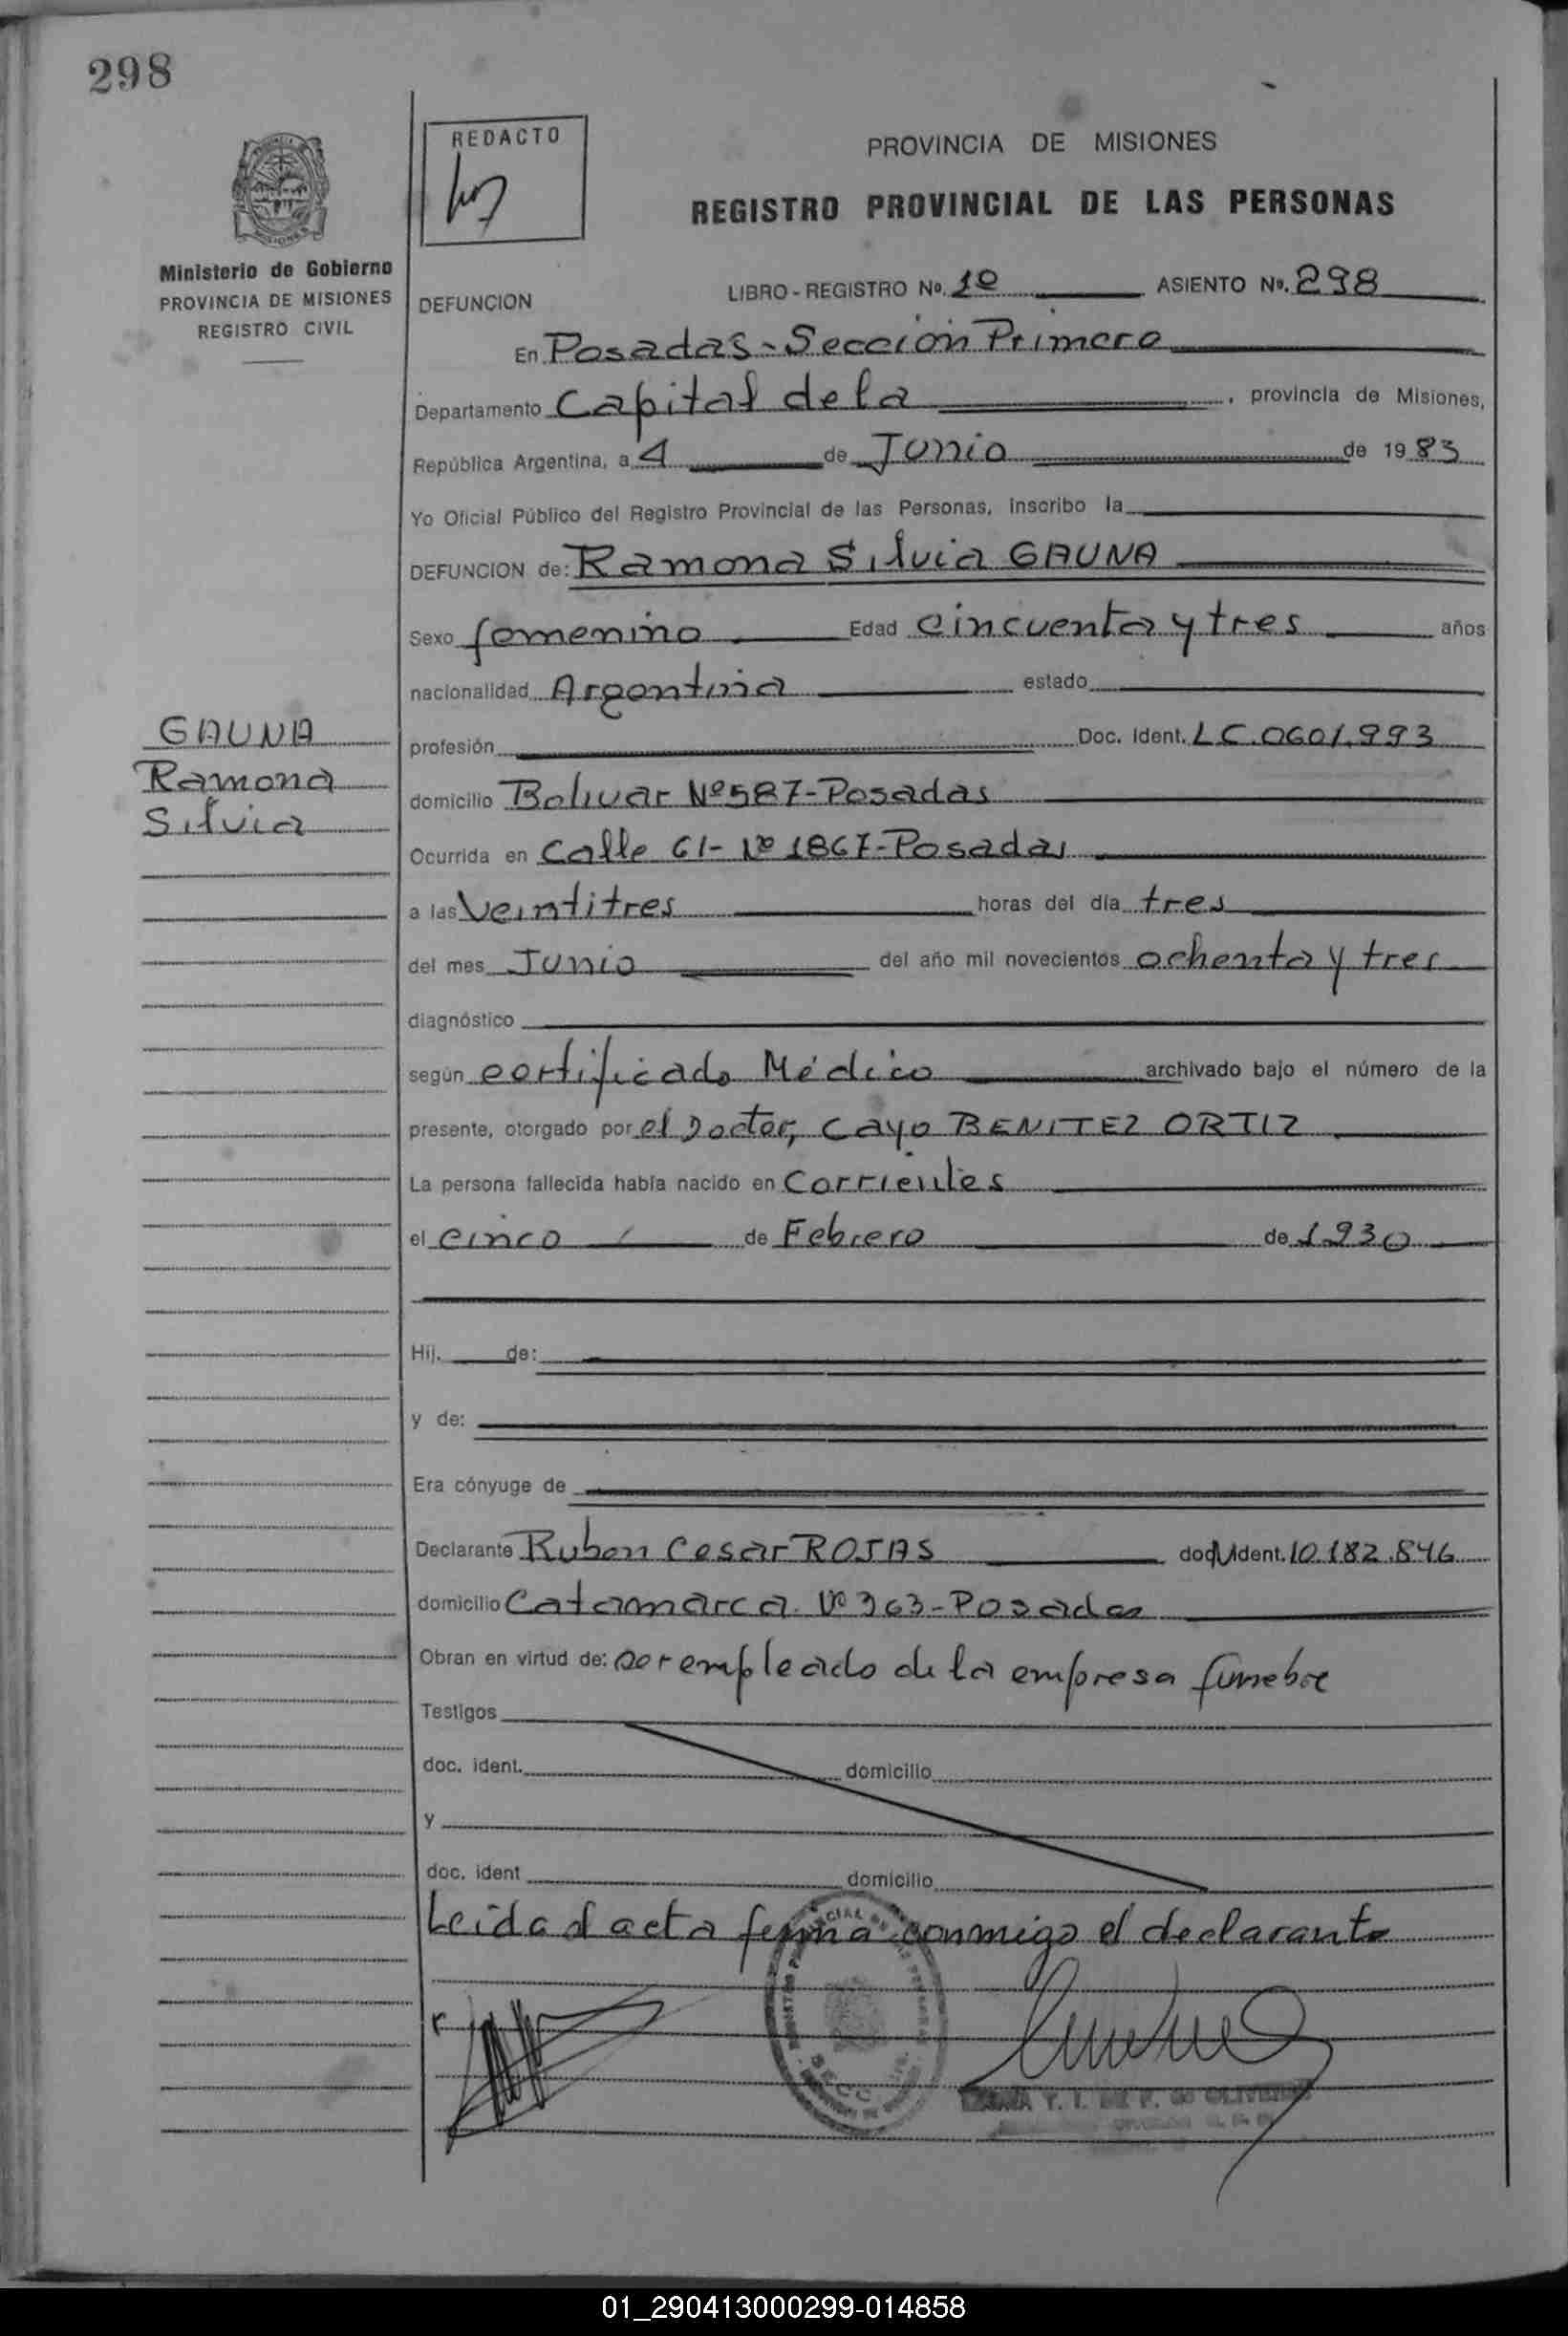 298
REDACTO
PROVINCIA DE MISIONES
REGISTRO PROVINCIAL DE LAS PERSONAS
Ministerio de Gobierno
PROVINCIA DE MISIONES
REGISTRO CIVIL
DEFUNCION LIBRO - REGISTRO No. 1º ASIENTO No. 298
En Posadas - Sección Primera
Departamento Capital de la , provincia de Misiones,
República Argentina, a 4 de Junio de 1983
Yo Oficial Público del Registro Provincial de las Personas, inscribo la
DEFUNCION de: Ramona Silvia GAUNA
Sexo femenino Edad cincuenta y tres años
nacionalidad Argentina estado
GAUNA
Ramona
Silvia
profesión Doc. Ident. LC.0601.993
domicilio Bolivar Nº 587-Posadas
Ocurrida en Calle 61- Nº 1867-Posadas
a las Veintitres horas del día tres
del mes Junio del año mil novecientos ochenta y tres
diagnóstico
según certificado Médico archivado bajo el número de la
presente, otorgado por el Doctor, Cayo BENITEZ ORTIZ
La persona fallecida había nacido en Corrientes
el cinco de Febrero de 1930
Hij. de:
y de:
Era cónyuge de
Declarante Ruben Cesar ROJAS doc. Ident. 10.182.846
domicilio Catamarca Nº 363-Posadas
Obran en virtud de: ser empleado de la empresa funebre
Testigos
doc. ident. domicilio
y
doc. ident domicilio
Leida el acta firma conmigo el declarante
SECC
Y. I. DE F. DE OLIVEIRA
01_290413000299-014858